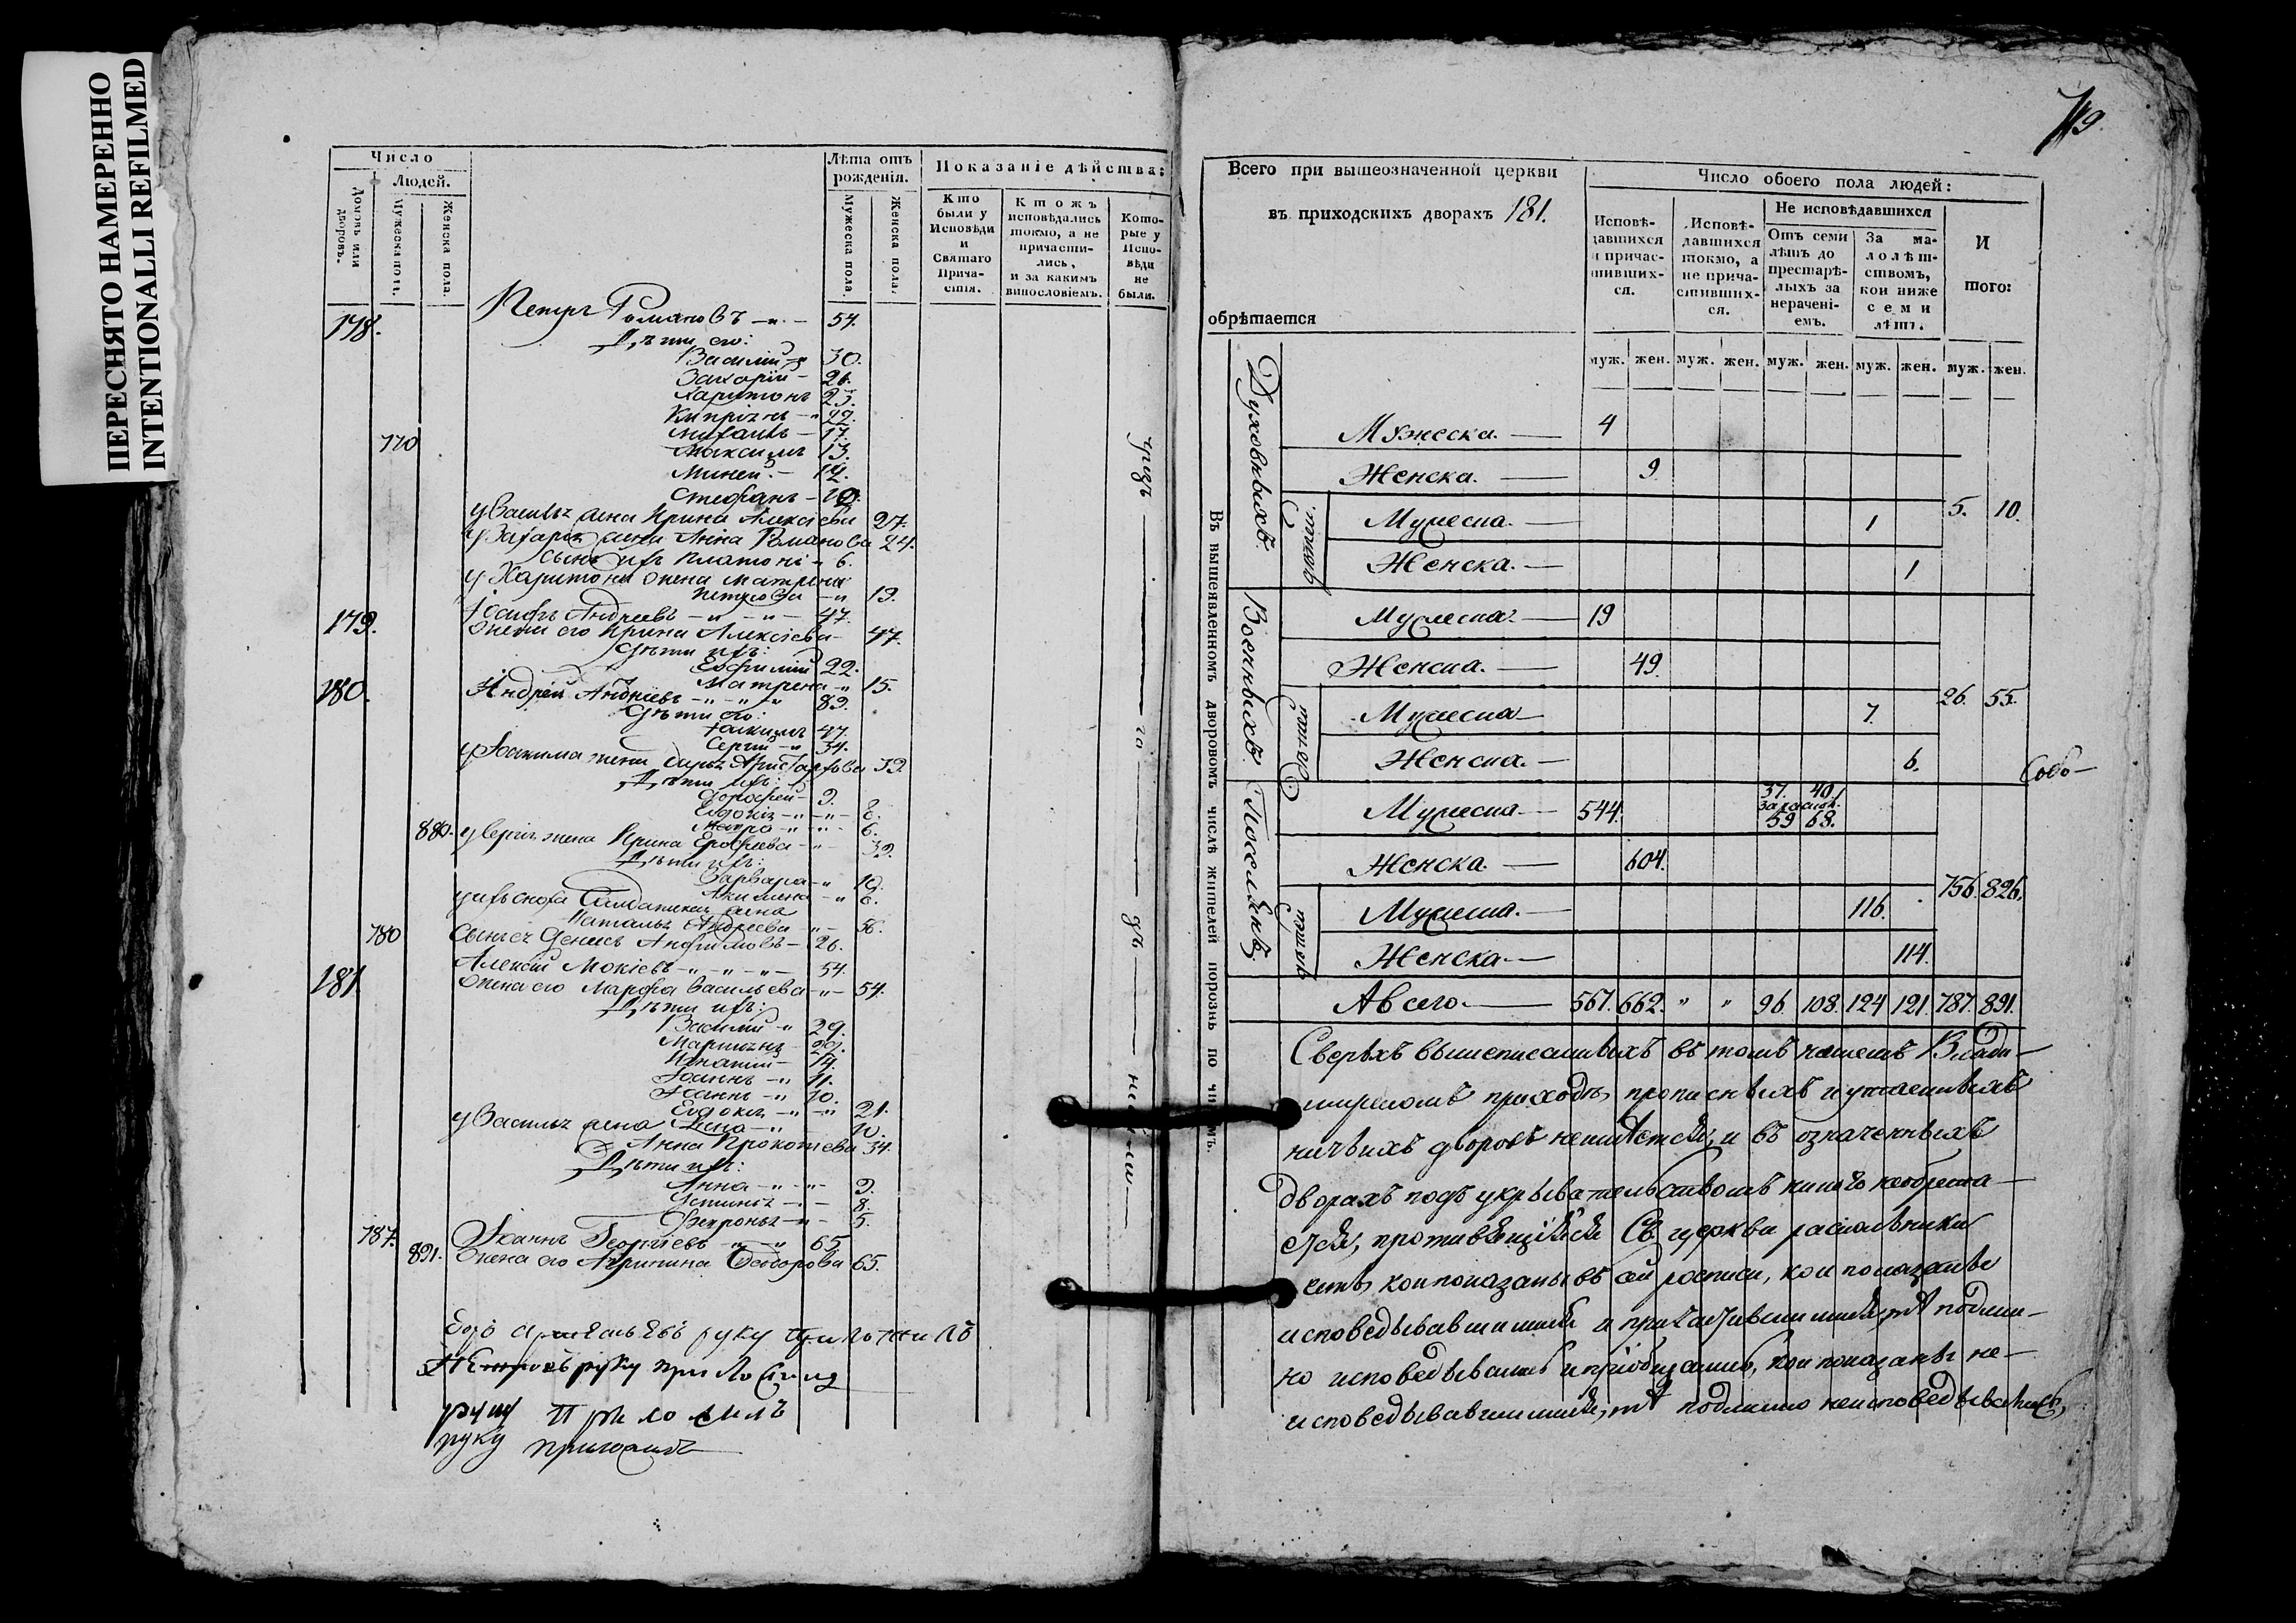 ПЕРЕСНЯТО НАМЕРЕННО
INTENTIONALLI REFILMED
Число
Людей.
Домовъ или дворовъ.
Мужеска пола.
Женска пола.
Лѣта отъ рожденія.
Мужеска пола.
Женска пола.
Показаніе дѣйства:
Кто были у Исповѣди и Святаго Прича-стія.
Ктожъ исповѣдались токмо, а не причасти-лись, и за какимъ винословіемъ.
Кото-рые у Испо-вѣди не были.
178. Петръ Романовъ 54.
Дѣти его:
Василій 30.
Захарій 26.
Харитонъ 23.
Кипріанъ 22.
Михаилъ 17.
770 Максимъ 13.
Миней 12.
Стефанъ
у Василья жена Ирина Алексіева 27.
у Захарія жена Анна Романова 24.
сынъ ихъ Платонъ 6.
у Харитона жена Матрена
Петрова 19.
179. Іосифъ Андреевъ 47.
Жена его Ирина Алексіева 47.
Дѣти ихъ:
Евфимій 22.
Матрена 15.
180. Андрей 83.
Дѣти его:
Іоакимъ 47.
Сергій 34.
у Іоакима жена Аристархова 39.
Дѣти ихъ:
Дорофей 9.
Евдокія 8.
6.
880. у Сергія жена Ирина Ерофеева 32.
Дѣти ихъ:
Варвара 10.
Акилина 8.
у ихъ сноха Салдатская жена
Наталья Андреева 56.
780 Сынъ ея Денисъ Анфимовъ 26.
181. Алексій Мокіевъ 54.
Жена его Марфа Васильева 54.
Дѣти ихъ:
Василій 29.
Мартинъ
Игнатій 14.
Іоаннъ 11.
Іоаннъ 10.
Евдокія 21.
у Василья жена 10.
Анна Прокопіева 34.
Дѣти ихъ:
Анна 9.
Устинья 8.
Февронья 5.
787. Іоаннъ Георгіевъ 65
891. Жена его Агрипина Феодорова 65.
руку приложилъ
руку приложилъ
руку приложилъ
руку приложилъ
Всего при вышеозначенной церкви
въ приходскихъ дворахъ 181.
обрѣтается
Число обоего пола людей:
Исповѣ-давшихся и причас-тивших-ся.
Исповѣ-давшихся токмо, а не прича-стивших-ся.
Не исповѣдавшихся
Отъ семи лѣтъ до престарѣ-лыхъ за нерачені-емъ.
За ма-лолѣт-ствомъ, кои ниже семи лѣтъ.
И того:
муж. жен. муж. жен. муж. жен. муж. жен. муж. жен.
Въ вышеявленномъ дворовомъ числѣ жителей порознь по чинамъ.
Духовныхъ.
Мужеска. 4
Женска. 9
Дѣтей
Мужеска. 1 5. 10.
Женска. 1
Военныхъ.
Мужеска. 19
Женска. 49.
Дѣтей
Мужеска 7. 26. 55.
Женска. 6.
Собо-
Поселянъ
Мужеска 544. 37. 40.
за раскол.
59 68.
Женска. 604.
756. 826.
Дѣтей
Мужеска. 116.
Женска 114.
А всего 567. 662. " " 96 108. 124 121. 787. 891.
Сверхъ вышеписанныхъ въ томъ нашемъ Влади-
мирскомъ приходѣ, прописныхъ и утаенныхъ
ничьихъ дворовъ неимѣется, и въ означенныхъ
дворахъ подъ укрывательствомъ никого необрета-
ется, противящіися Св. церкви раскольники
есть, кои показаны въ сей росписи, кои показаны
исповедывавшимися и причастившимися, тѣ подлин-
но исповедывались и пріобщались, кои показаны не-
исповедывавшимися, тѣ подлинно неисповедывались,